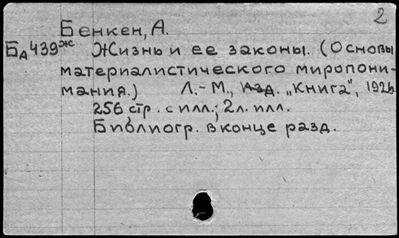 2
Бенкен, А.
БА439ж Жизнь и ее законы. (Основы
материалистического миропони-
мания.) Л.-М., Изд. „Книга", 1926.
256 стр. с илл.; 2 л. илл.
Библиогр. в конце разд.